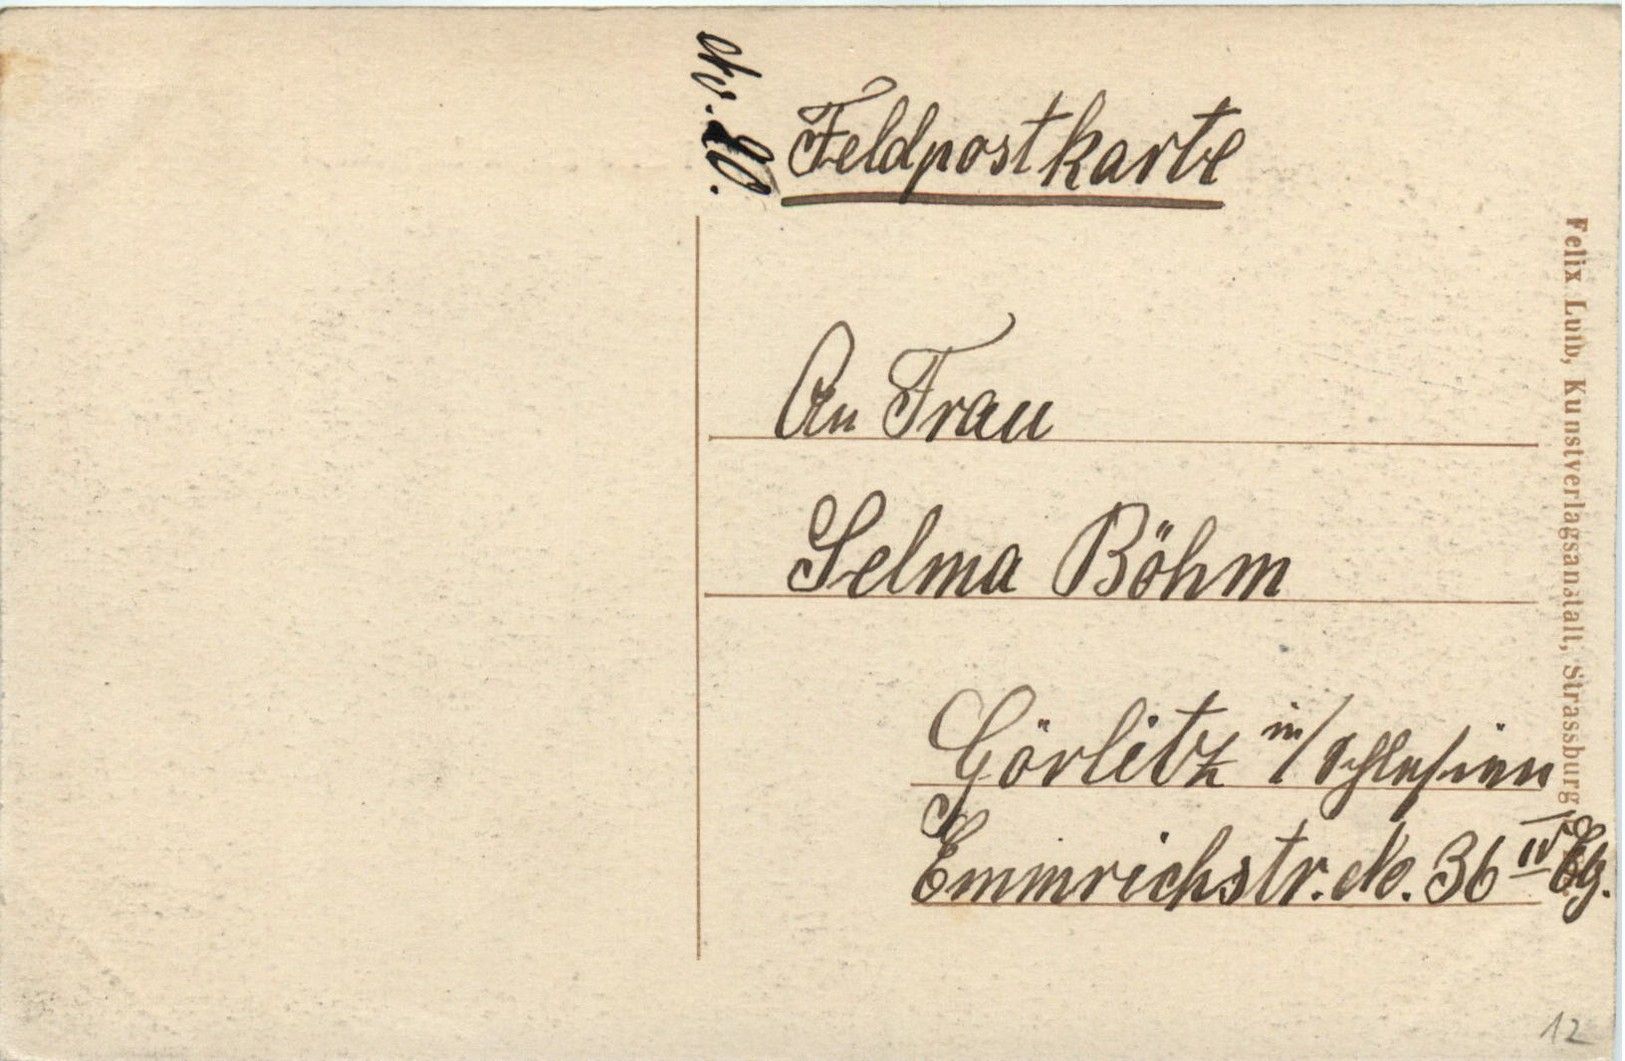 No. 20.
Feldpostkarte
An Frau
Selma Böhm
Görlitz in/Schlesien
Emmrichstr. No. 36 IV Etg.
Felix Luib, Kunstverlagsanstalt, Strassburg
12